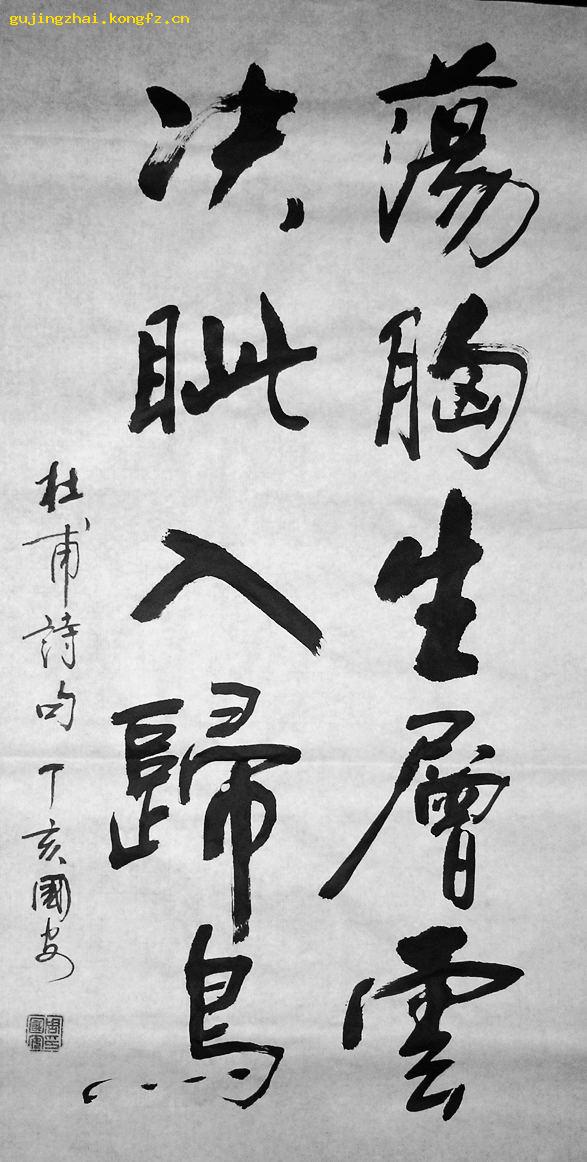 gujingzhai.kongfz.cn
蕩胸生層雲
决眦入歸鳥
杜甫詩句丁亥國安